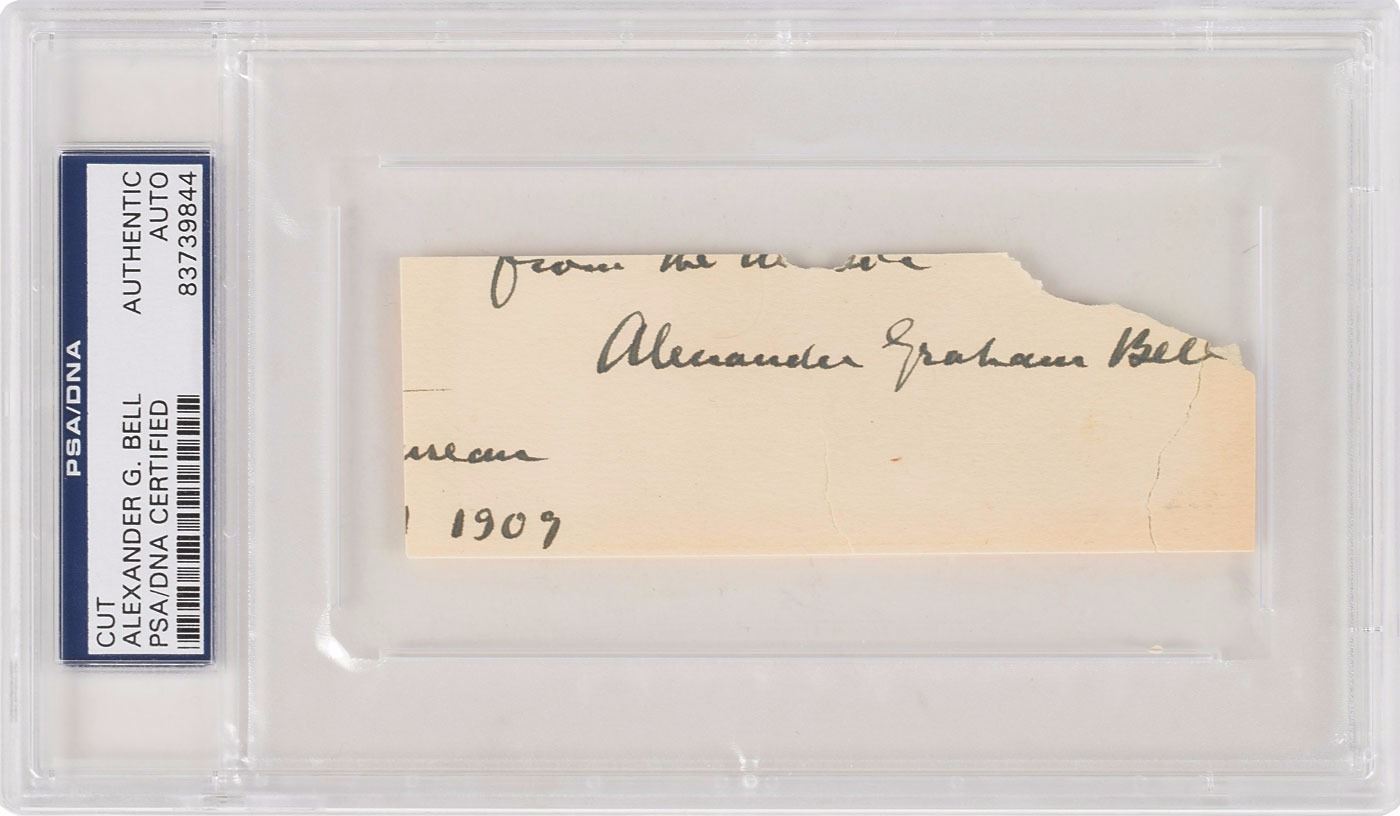 PSA/DNA
CUT AUTHENTIC
ALEXANDER G. BELL AUTO
PSA/DNA CERTIFIED 83739844
from the
Alexander Graham Bell
1909